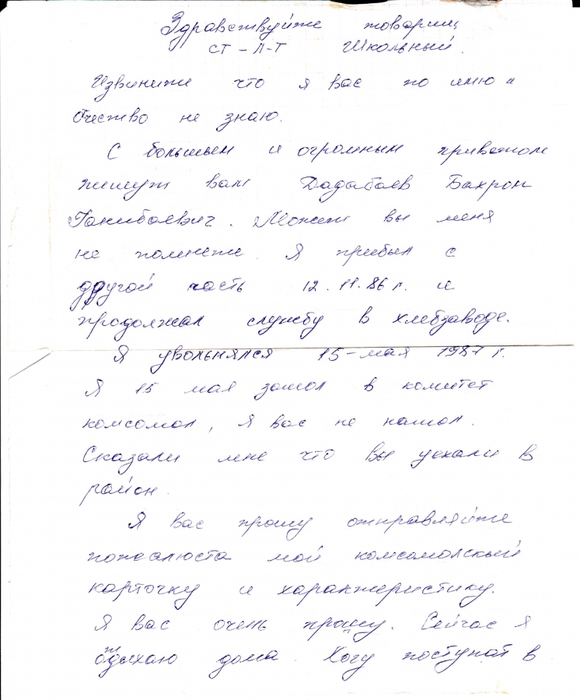 Здравствуйте товарищ
СТ-Л-Т Школьный.
Извините что я вас по имю и
Очество не знаю.
С большем и огромным приветом
пишут вам Дадабаев Бахром
Ганибаевич. Может вы меня
не помните. Я прибыл с
другой часть 12.11.86 г. и
продолжал службу в хлебзаводе.
Я увольнялся 15-мая 1987 г.
Я 15 мая зашол в комитет
комсомол, я вас не нашол.
Сказали мне что вы уехали в
район.
Я вас прошу отправляйте
пожалюста мой комсомолский
карточку и характеристику.
Я вас очень прошу. Сейчас я
отдыхаю дома. Хочу поступат в